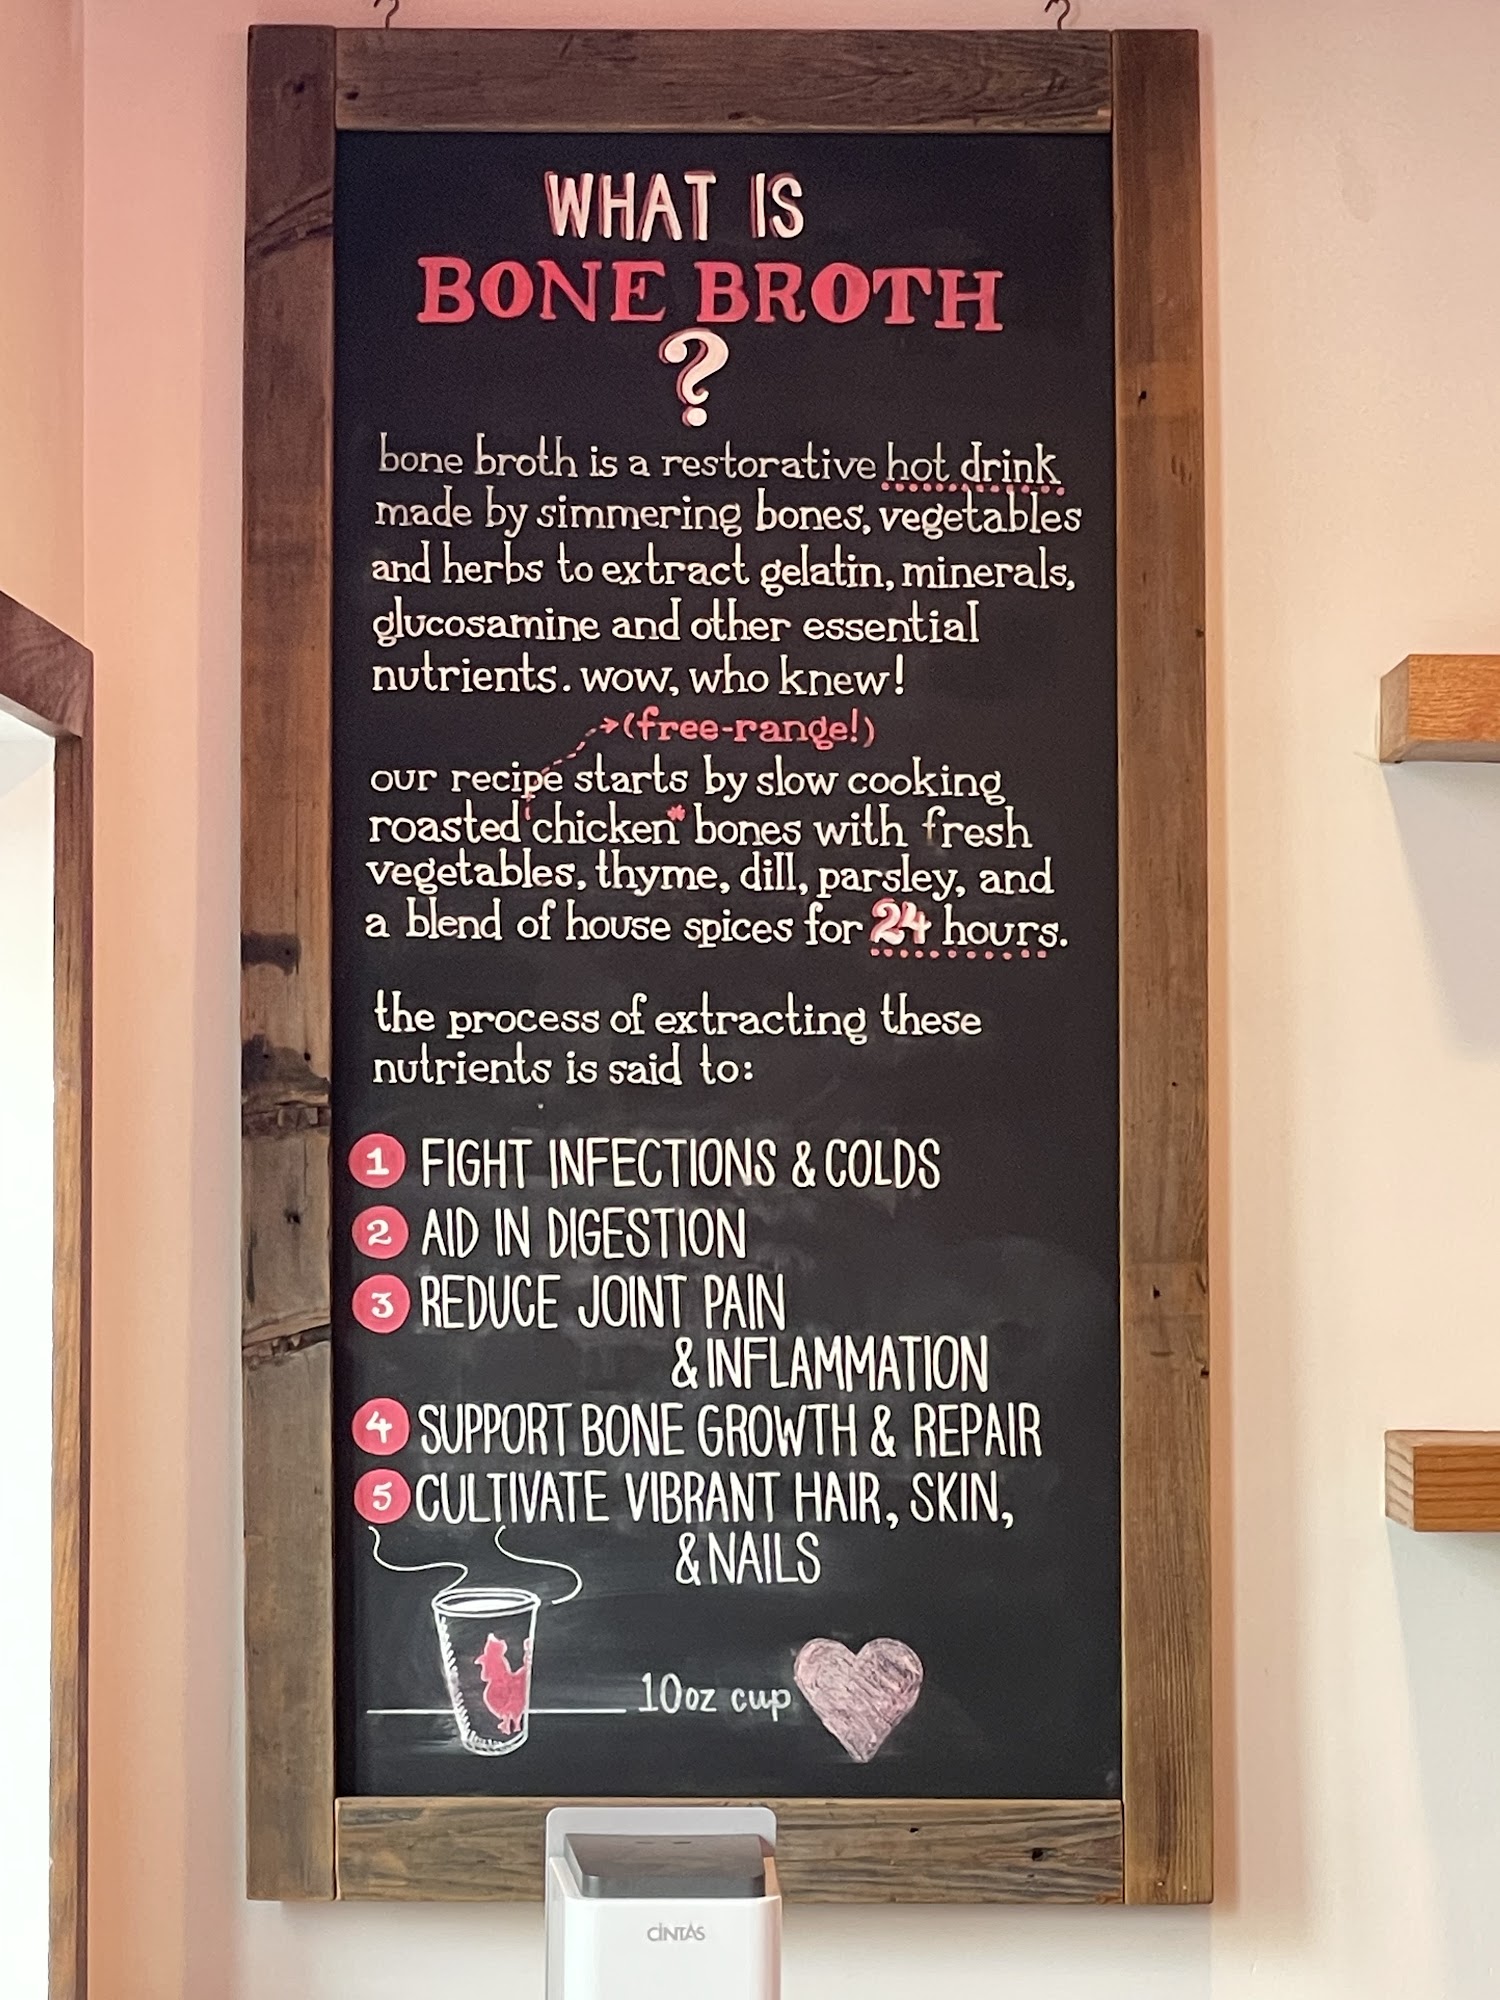 WHAT IS
BONE BROTH
?
bone broth is a restorative hot drink
made by simmering bones, vegetables
and herbs to extract gelatin, minerals,
glucosamine and other essential
nutrients. wow, who knew!
(free-range!)
our recipe starts by slow cooking
roasted chicken* bones with fresh
vegetables, thyme, dill, parsley, and
a blend of house spices for 24 hours.
the process of extracting these
nutrients is said to:
1 FIGHT INFECTIONS & COLDS
2 AID IN DIGESTION
3 REDUCE JOINT PAIN
& INFLAMMATION
4 SUPPORT BONE GROWTH & REPAIR
5 CULTIVATE VIBRANT HAIR, SKIN,
& NAILS
10oz cup
CINTAS